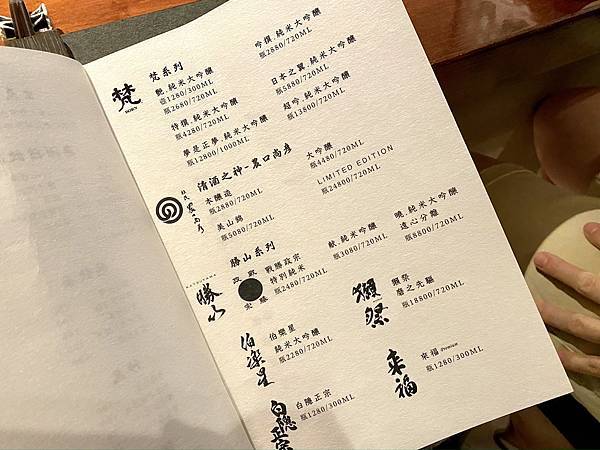 梵
BORN
梵系列
艶.純米大吟釀
壺1280/300ML
瓶2680/720ML
特撰.純米大吟釀
瓶4280/720ML
夢是正夢.純米大吟釀
瓶12800/1000ML
吟撰.純米大吟釀
瓶2880/720ML
日本之翼.純米大吟釀
瓶5880/720ML
超吟.純米大吟釀
瓶13800/720ML
清酒之神-農口尚彥
本釀造
瓶2880/720ML
美山錦
瓶5080/720ML
大吟釀
瓶4480/720ML
LIMITED EDITION
瓶24800/720ML
KATSUYAMA
勝山
勝山系列
戰勝政宗
特別純米
瓶2480/720ML
献.純米吟釀
瓶3080/720ML
曉.純米大吟釀
遠心分離
瓶8800/720ML
伯樂星
伯樂星
純米大吟釀
瓶2280/720ML
獺祭
獺祭
磨之先驅
瓶18800/720ML
白隱正宗
白隱正宗
瓶1280/300ML
来福
來福 Premium
瓶1280/300ML